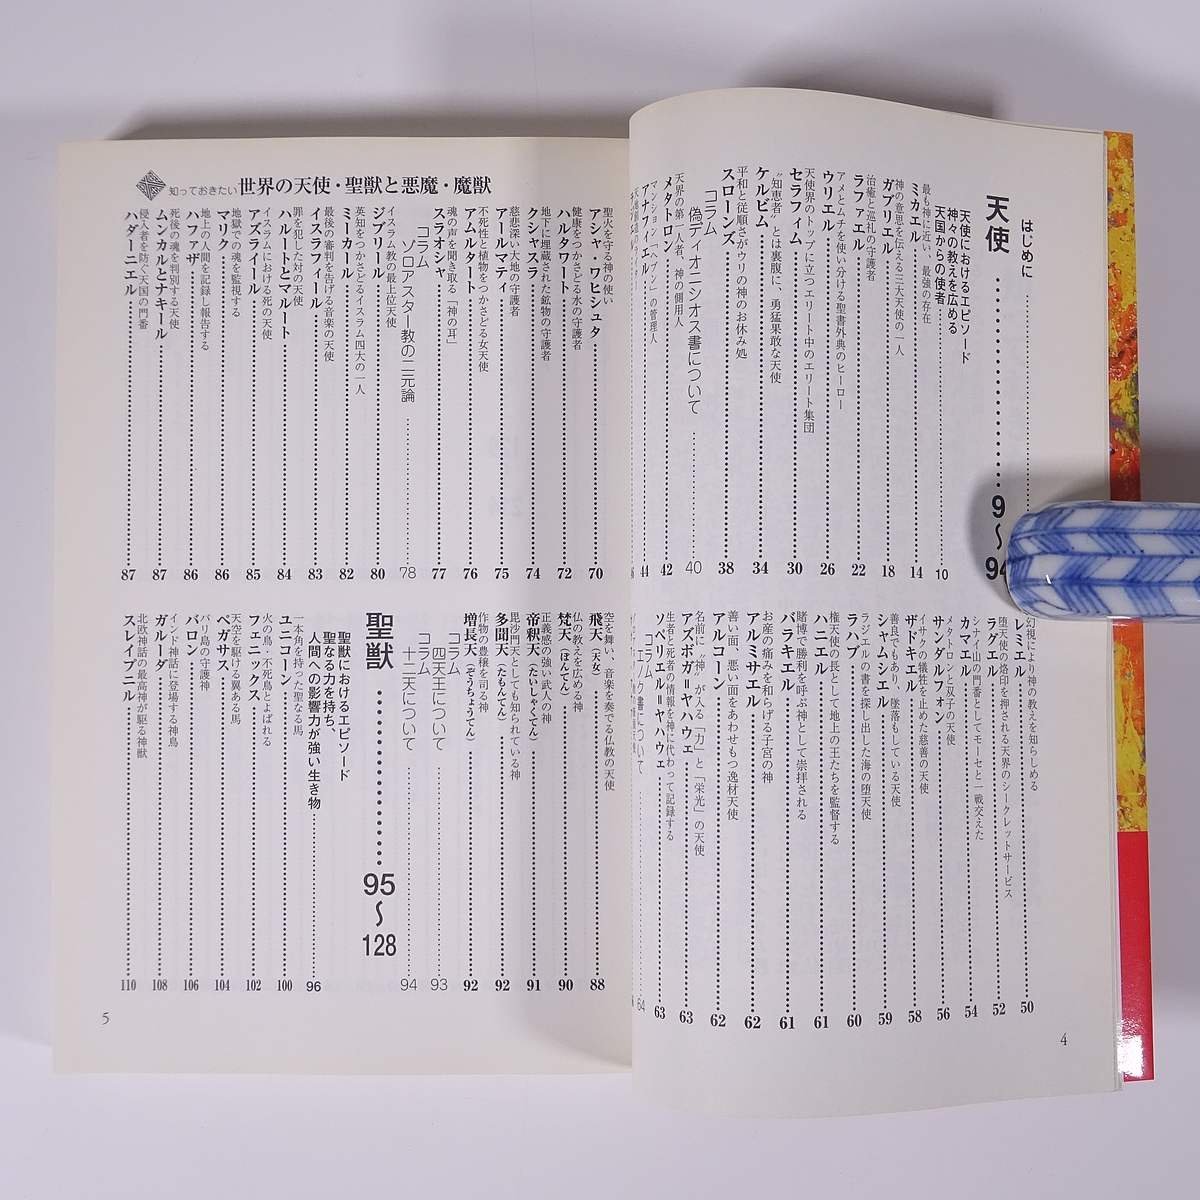 はじめに
天使 9〜94
天使におけるエピソード
神々の教えを広める
天国からの使者 10
最も神に近い、最強の存在
ミカエル 14
神の意思を伝える三大天使の一人
ガブリエル 18
治癒と巡礼の守護者
ラファエル 22
アメとムチを使い分ける聖書外典のヒーロー
ウリエル 26
天使界のトップに立つエリート中のエリート集団
セラフィム 30
“知恵者”とは裏腹に、勇猛果敢な天使
ケルビム 34
平和と従順さがウリの神のお休み処
スローンズ 38
コラム
偽ディオニシオス書について 40
天界の第一人者、神の側用人
メタトロン 42
マンション「ヘブン」の管理人
アナフィエル 44
幻視により神の教えを知らしめる
レミエル 50
堕天使の烙印を押される天界のシークレットサービス
ラグエル 52
シナイ山の門番としてモーセと一戦交えた
カマエル 54
メタトロンと双子の天使
サンダルフォン 56
イサクの犠牲を止めた慈善の天使
ザドキエル 58
善良でもあり、墜落もしている天使
シャムシエル 59
ラジエルの書を探し出した海の堕天使
ラハブ 60
権天使の長として地上の王たちを監督する
ハニエル 61
賭博で勝利を呼ぶ神として崇拝される
バラキエル 61
お産の痛みを和らげる子宮の神
アルミサエル 62
善い面、悪い面をあわせもつ逸材天使
アルコーン 62
名前に“神”が入る「力」と「栄光」の天使
アズボガ＝ヤハウェ 63
生者と死者の情報を神に代わって記録する
ソペリエル＝ヤハウェ 63
コラム
エノク書について 64
4
知っておきたい 世界の天使・聖獣と悪魔・魔獣
聖火を守る神の使い
アシャ・ワヒシュタ 70
健康をつかさどる水の守護者
ハルタワート 72
地下に埋蔵された鉱物の守護者
クシャスラ 74
慈悲深い大地の守護者
アールマティ 75
不死性と植物をつかさどる女天使
アムルタート 76
魂の声を聞き取る「神の耳」
スラオシャ 77
コラム
ゾロアスター教の二元論 78
イスラム教の最上位天使
ジブリール 80
英知をつかさどるイスラム四大の一人
ミーカール 82
最後の審判を告げる音楽の天使
イスラフィール 83
罪を犯した対の天使
ハルートとマルート 84
イスラムにおける死の天使
アズライール 85
地獄での魂を監視する
マリク 86
地上の人間を記録し報告する
ハファザ 86
死後の魂を判別する天使
ムンカルとナキール 87
侵入者を防ぐ天国の門番
ハダーニエル 87
空を舞い、音楽を奏でる仏教の天使
飛天（天女） 88
仏の教えを広める神
梵天（ぼんてん） 90
正義感の強い武人の神
帝釈天（たいしゃくてん） 91
毘沙門天としても知られている神
多聞天（たもんてん） 92
作物の豊穣を司る神
増長天（ぞうちょうてん） 92
コラム
四天王について 93
コラム
十二天について 94
聖獣 95〜128
聖獣におけるエピソード
聖なる力を持ち、
人間への影響力が強い生き物 96
一本角を持った聖なる馬
ユニコーン 100
火の鳥・不死鳥とよばれる
フェニックス 102
天空を駆ける翼ある馬
ペガサス 104
バリ島の守護神
バロン 106
インド神話に登場する神鳥
ガルーダ 108
北欧神話の最高神が駆る神獣
スレイプニル 110
5